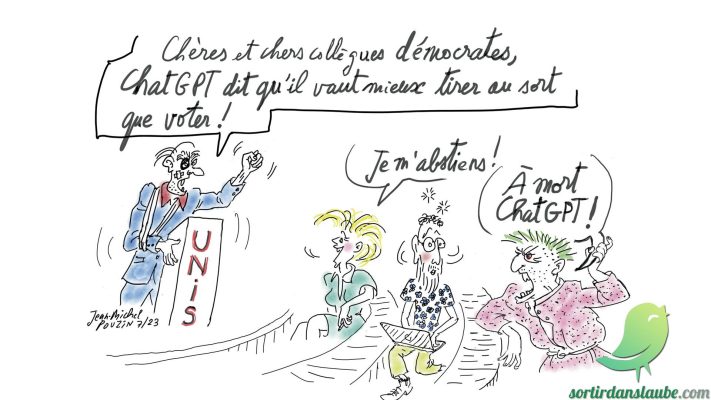 Chères et chers collègues démocrates,
ChatGPT dit qu'il vaut mieux tirer au sort
que voter !
Je m'abstiens !
À mort
ChatGPT !
UNIS
Jean-Michel
POUZIN 7/23
sortirdanslaube.com